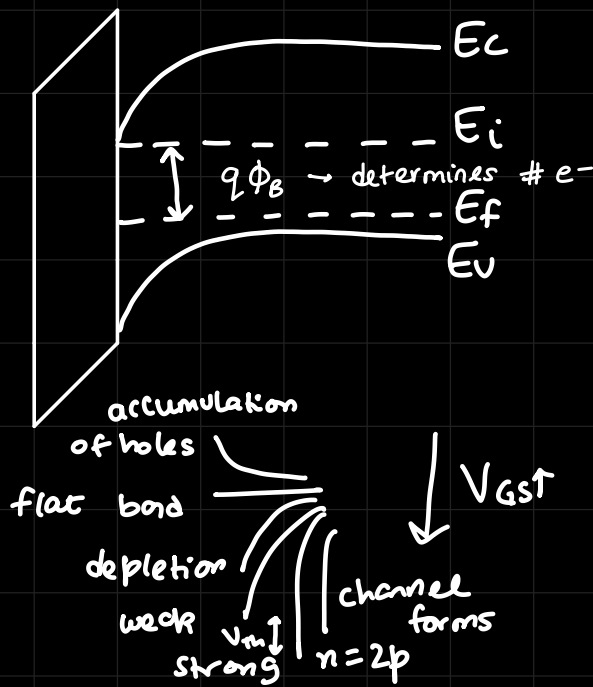 Ec
Ei
qϕB → determines # e-
Ef
Ev
accumulation
of holes
flat band
depletion
weak
Vth
strong
VGS↑
channel
forms
n=2p